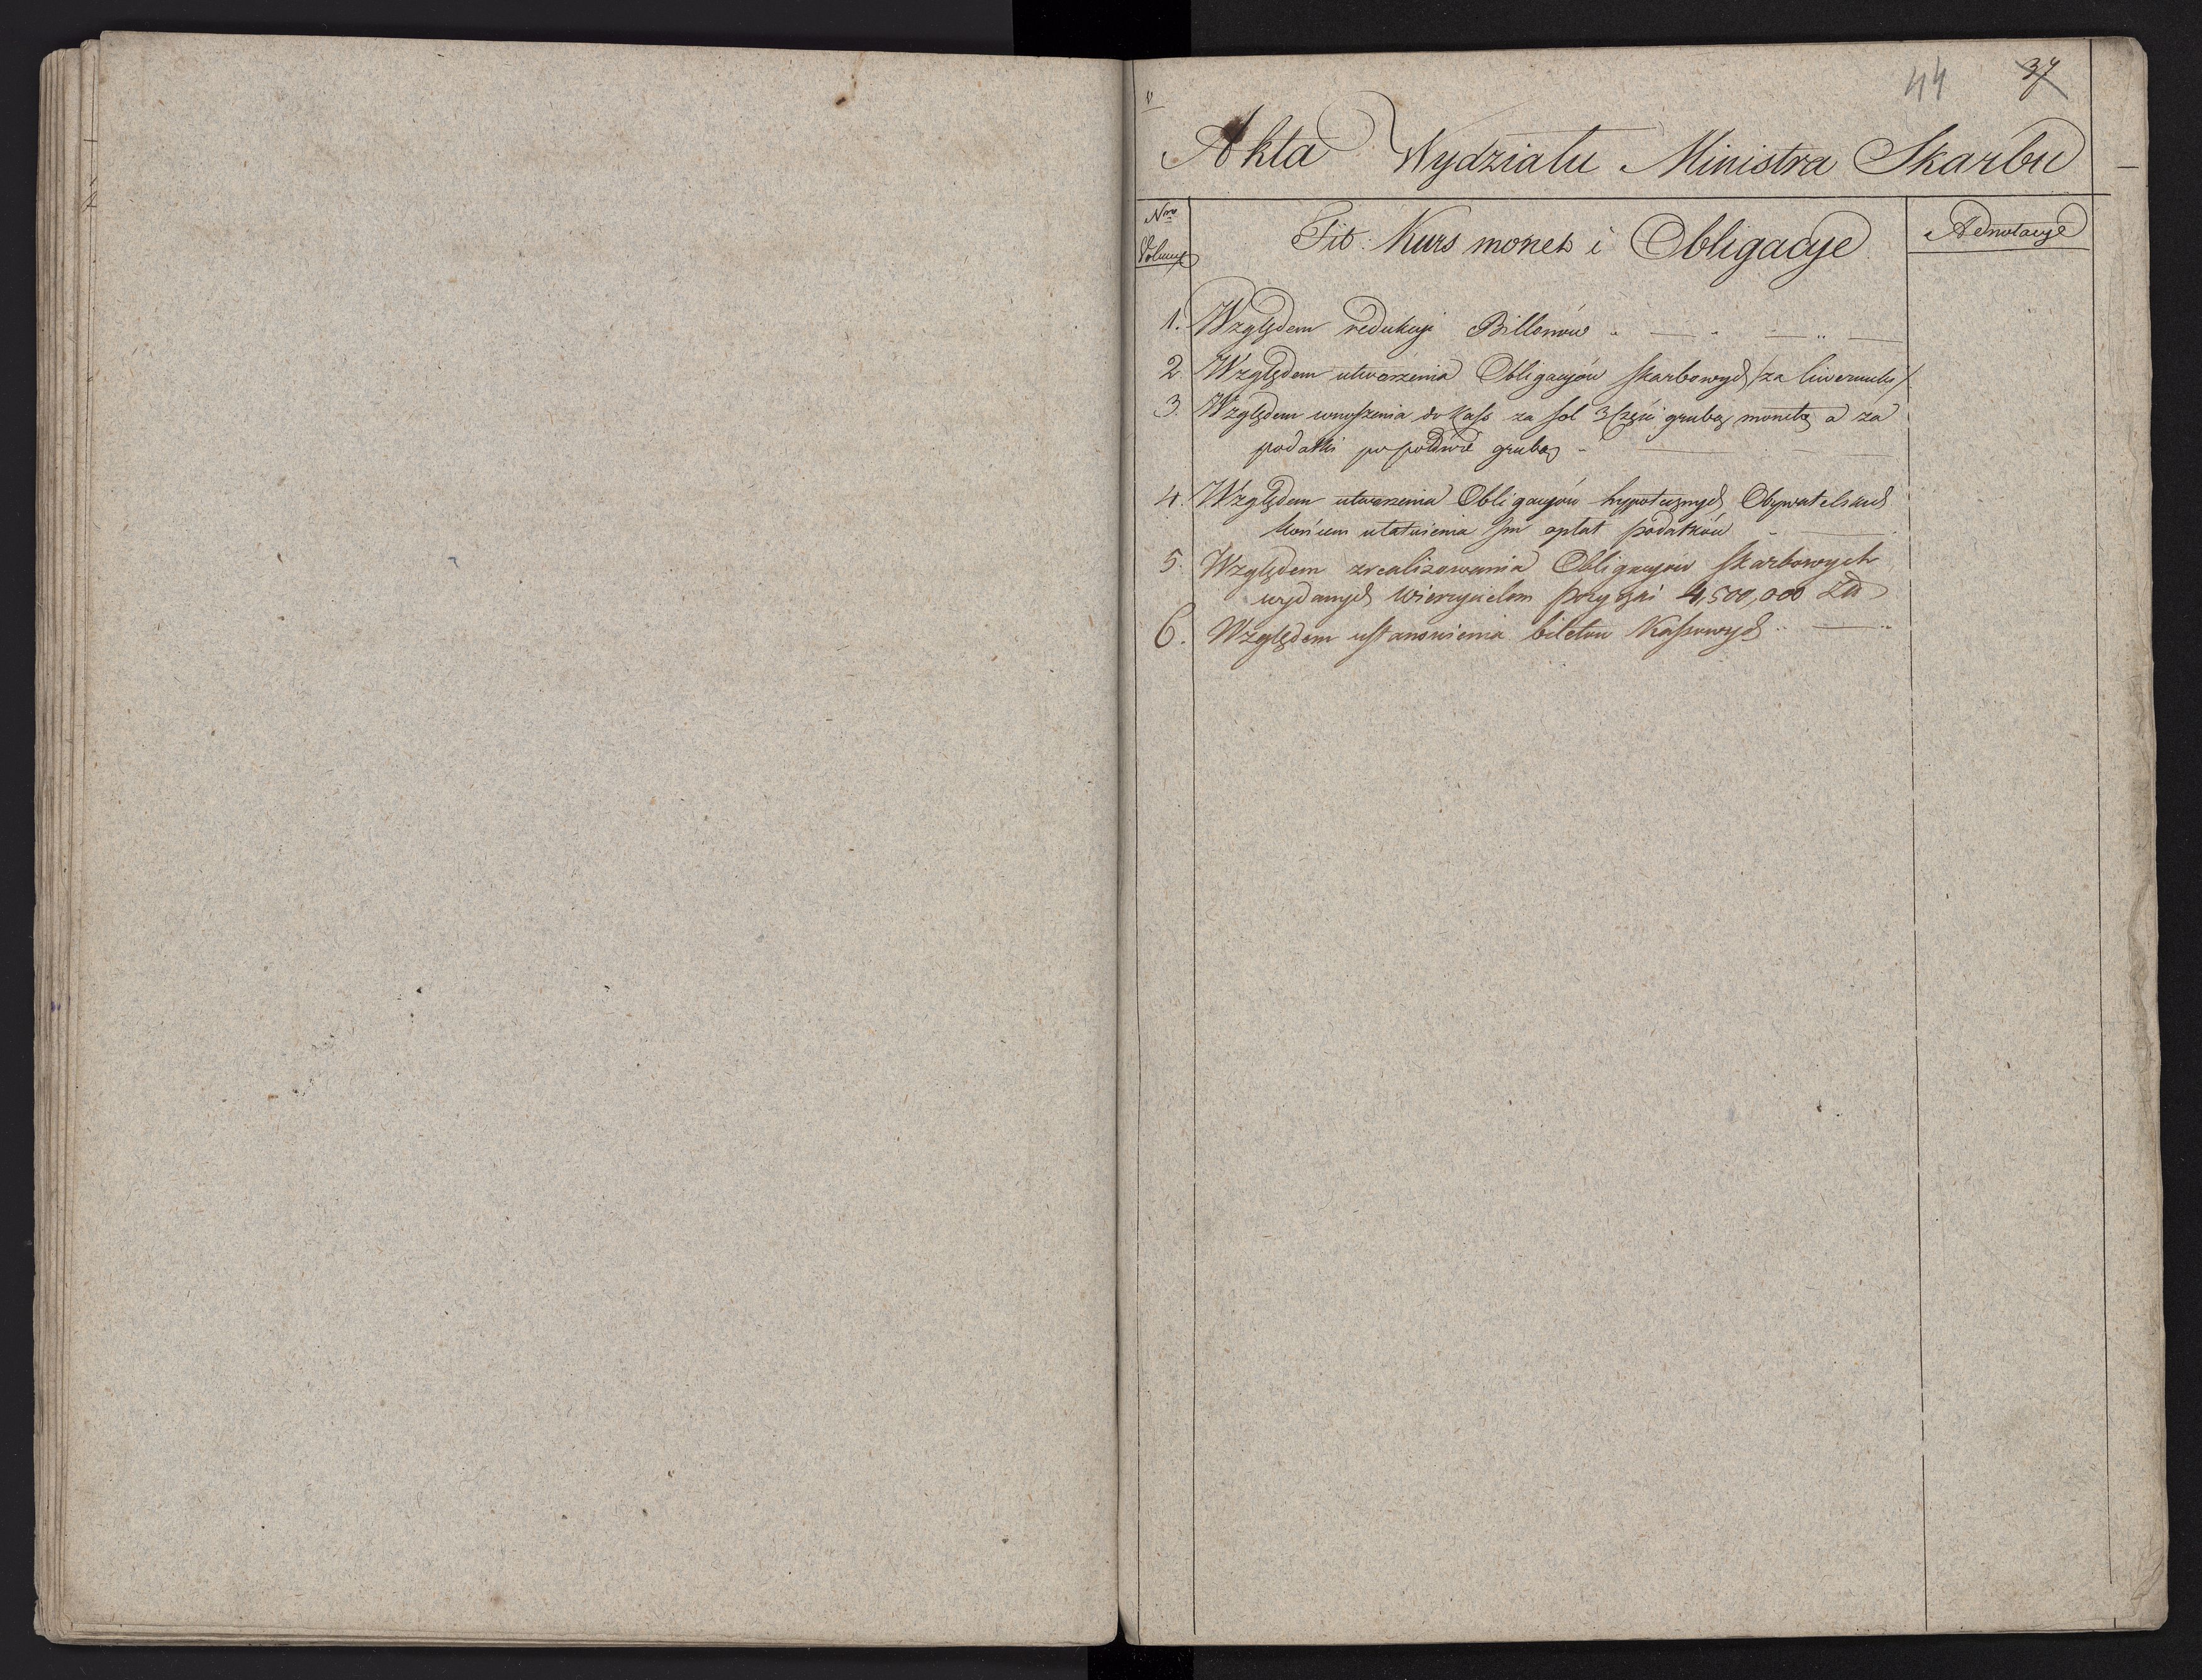 44 37
Akta Wydziału Ministra Skarbu
Nro
Volumy
Tit: Kurs monet i Obligacye
Adnotacye
1. Względem redukcyi Billonów
2. Względem utworzenia Obligacyów skarbowych /za liwerunki/
3. Względem wnoszenia do Kass za sol 3 części grubą monetą a za
podatki po połowie grubą
4. Względem utworzenia Obligacyów hypotecznych Obywatelskich
końcem ułatwienia im opłat podatków
5. Względem zrealizowania Obligacyów skarbowych
wydanych wierzycielom pożyczki 4,500,000 Zł
6. Względem ustanowienia biletów Kassowych